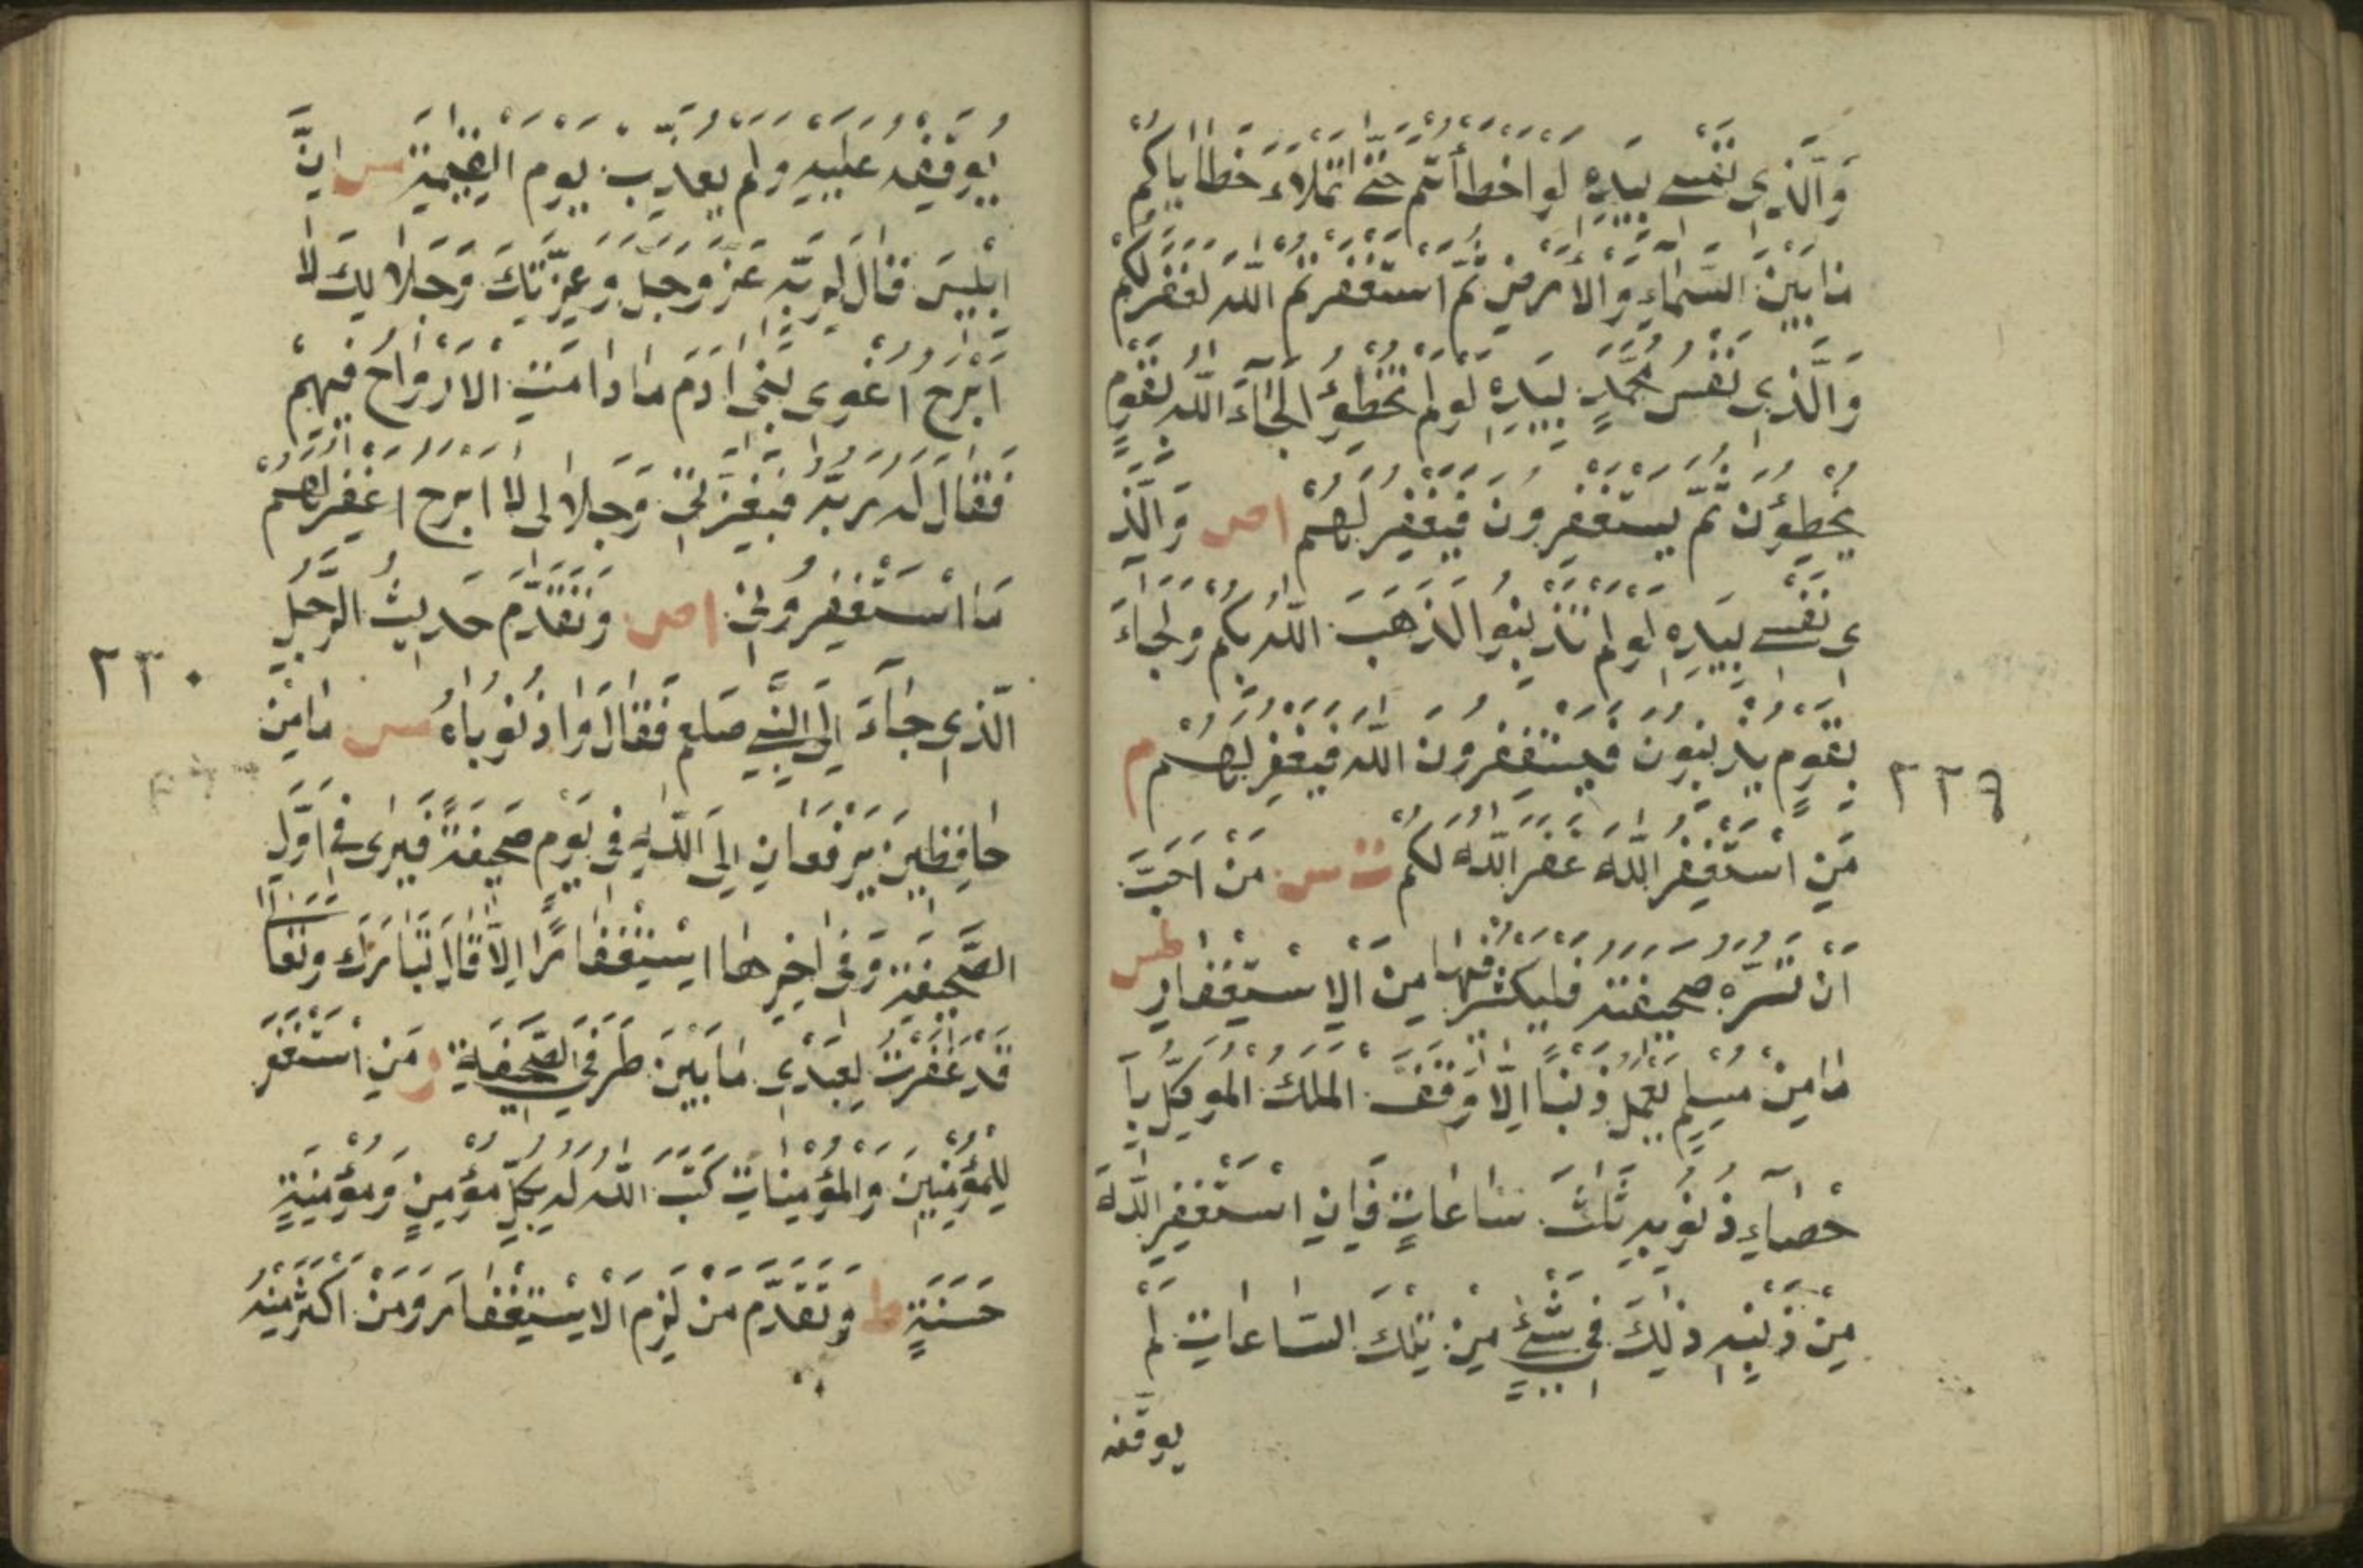 وَالَّذِي نَفْسِي بِيَدِهِ لَوْ اَخْطَأْتُمْ حَتّٰى تَمْلَاءَ خَطَايَاكُمْ
مَا بَيْنَ السَّمَاءِ وَالْاَرْضِ ثُمَّ اسْتَغْفَرْتُمُ اللّٰهَ لَغَفَرَ لَكُمْ
وَالَّذِي نَفْسُ مُحَمَّدٍ بِيَدِهِ لَوْ لَمْ تُخْطِؤُا لَجَاءَ اللّٰهُ بِقَوْمٍ
يُخْطِؤُنَ ثُمَّ يَسْتَغْفِرُونَ فَيَغْفِرُ لَهُمْ اص وَالَّذِ
ى نَفْسِي بِيَدِهِ لَوْ لَمْ تُذْنِبُوا لَذَهَبَ اللّٰهُ بِكُمْ وَلَجَاءَ
بِقَوْمٍ يُذْنِبُونَ فَيَسْتَغْفِرُونَ اللّٰهَ فَيَغْفِرُ لَهُمْ م
مَنِ اسْتَغْفَرَ اللّٰهَ غَفَرَ اللّٰهُ لَكُمْ ت س مَنْ اَحَبَّ
٢٢٩
اَنْ تَسُرَّهُ صَحِيفَتُهُ فَلْيُكْثِرْ فِيهَا مِنَ الْاِسْتِغْفَارِ طس
مَا مِنْ مُسْلِمٍ يَعْمَلُ ذَنْبًا اِلَّا وَقَفَ الْمَلَكُ الْمُوَكَّلُ بِاِ
حْصَاءِ ذُنُوبِهِ ثَلٰثَ سَاعَاتٍ فَاِنِ اسْتَغْفَرَ اللّٰهَ
مِنْ ذَنْبِهِ ذٰلِكَ فِي شَيْءٍ مِنْ تِلْكَ السَّاعَاتِ لَمْ
يوقفه
يُوقِفْهُ عَلَيْهِ وَلَمْ يُعَذَّبْ يَوْمَ الْقِيٰمَةِ مس اِنَّ
اِبْلِيسَ قَالَ لِرَبِّهِ عَزَّ وَجَلَّ وَعِزَّتِكَ وَجَلَالِكَ لَا
اَبْرَحُ اُغْوِى بَنِي اٰدَمَ مَا دَامَتِ الْاَرْوَاحُ فِيهِمْ
فَقَالَ لَهُ رَبُّهُ فَبِعِزَّتِي وَجَلَالِى لَا اَبْرَحُ اَغْفِرُ لَهُمْ
مَا اسْتَغْفَرُونِي اص وَتَقَدَّمَ حَدِيثُ الرَّجُلِ
٢٣٠
الَّذِي جَاءَ اِلَى النَّبِيِّ صلعم فَقَالَ وَاذُنُوبَاهُ مس مَا مِنْ
حَافِظَيْنِ يَرْفَعَانِ اِلَى اللّٰهِ فِي يَوْمٍ صَحِيفَةً فَيَرٰى فِي اَوَّلِ
الصَّحِيفَةِ وَفِي اٰخِرِهَا اسْتِغْفَارًا اِلَّا قَالَ تَبَارَكَ وَتَعَا
قَدْ غَفَرْتُ لِعَبْدِي مَا بَيْنَ طَرَفَيِ الصَّحِيفَةِ ر مَنِ اسْتَغْفَرَ
لِلْمُؤْمِنِينَ وَالْمُؤْمِنَاتِ كَتَبَ اللّٰهُ لَهُ بِكُلِّ مُؤْمِنٍ وَمُؤْمِنَةٍ
حَسَنَةٍ ط وَتَقَدَّمَ مَنْ لَزِمَ الْاِسْتِغْفَارَ وَمَنْ اَكْثَرَ مِنْهُ